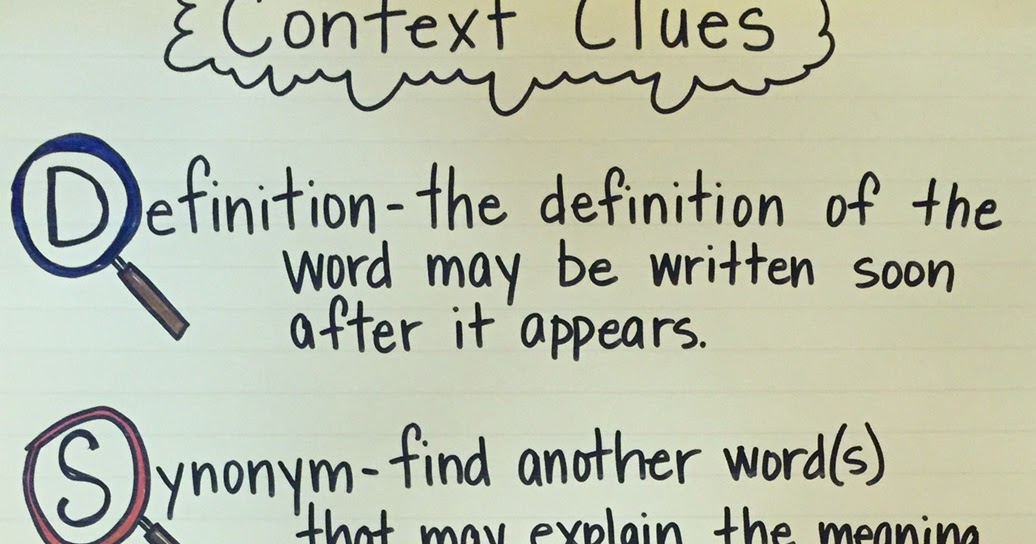 Context Clues
Definition-the definition of the
word may be written soon
after it appears.
Synonym-find another word(s)
that may explain the meaning